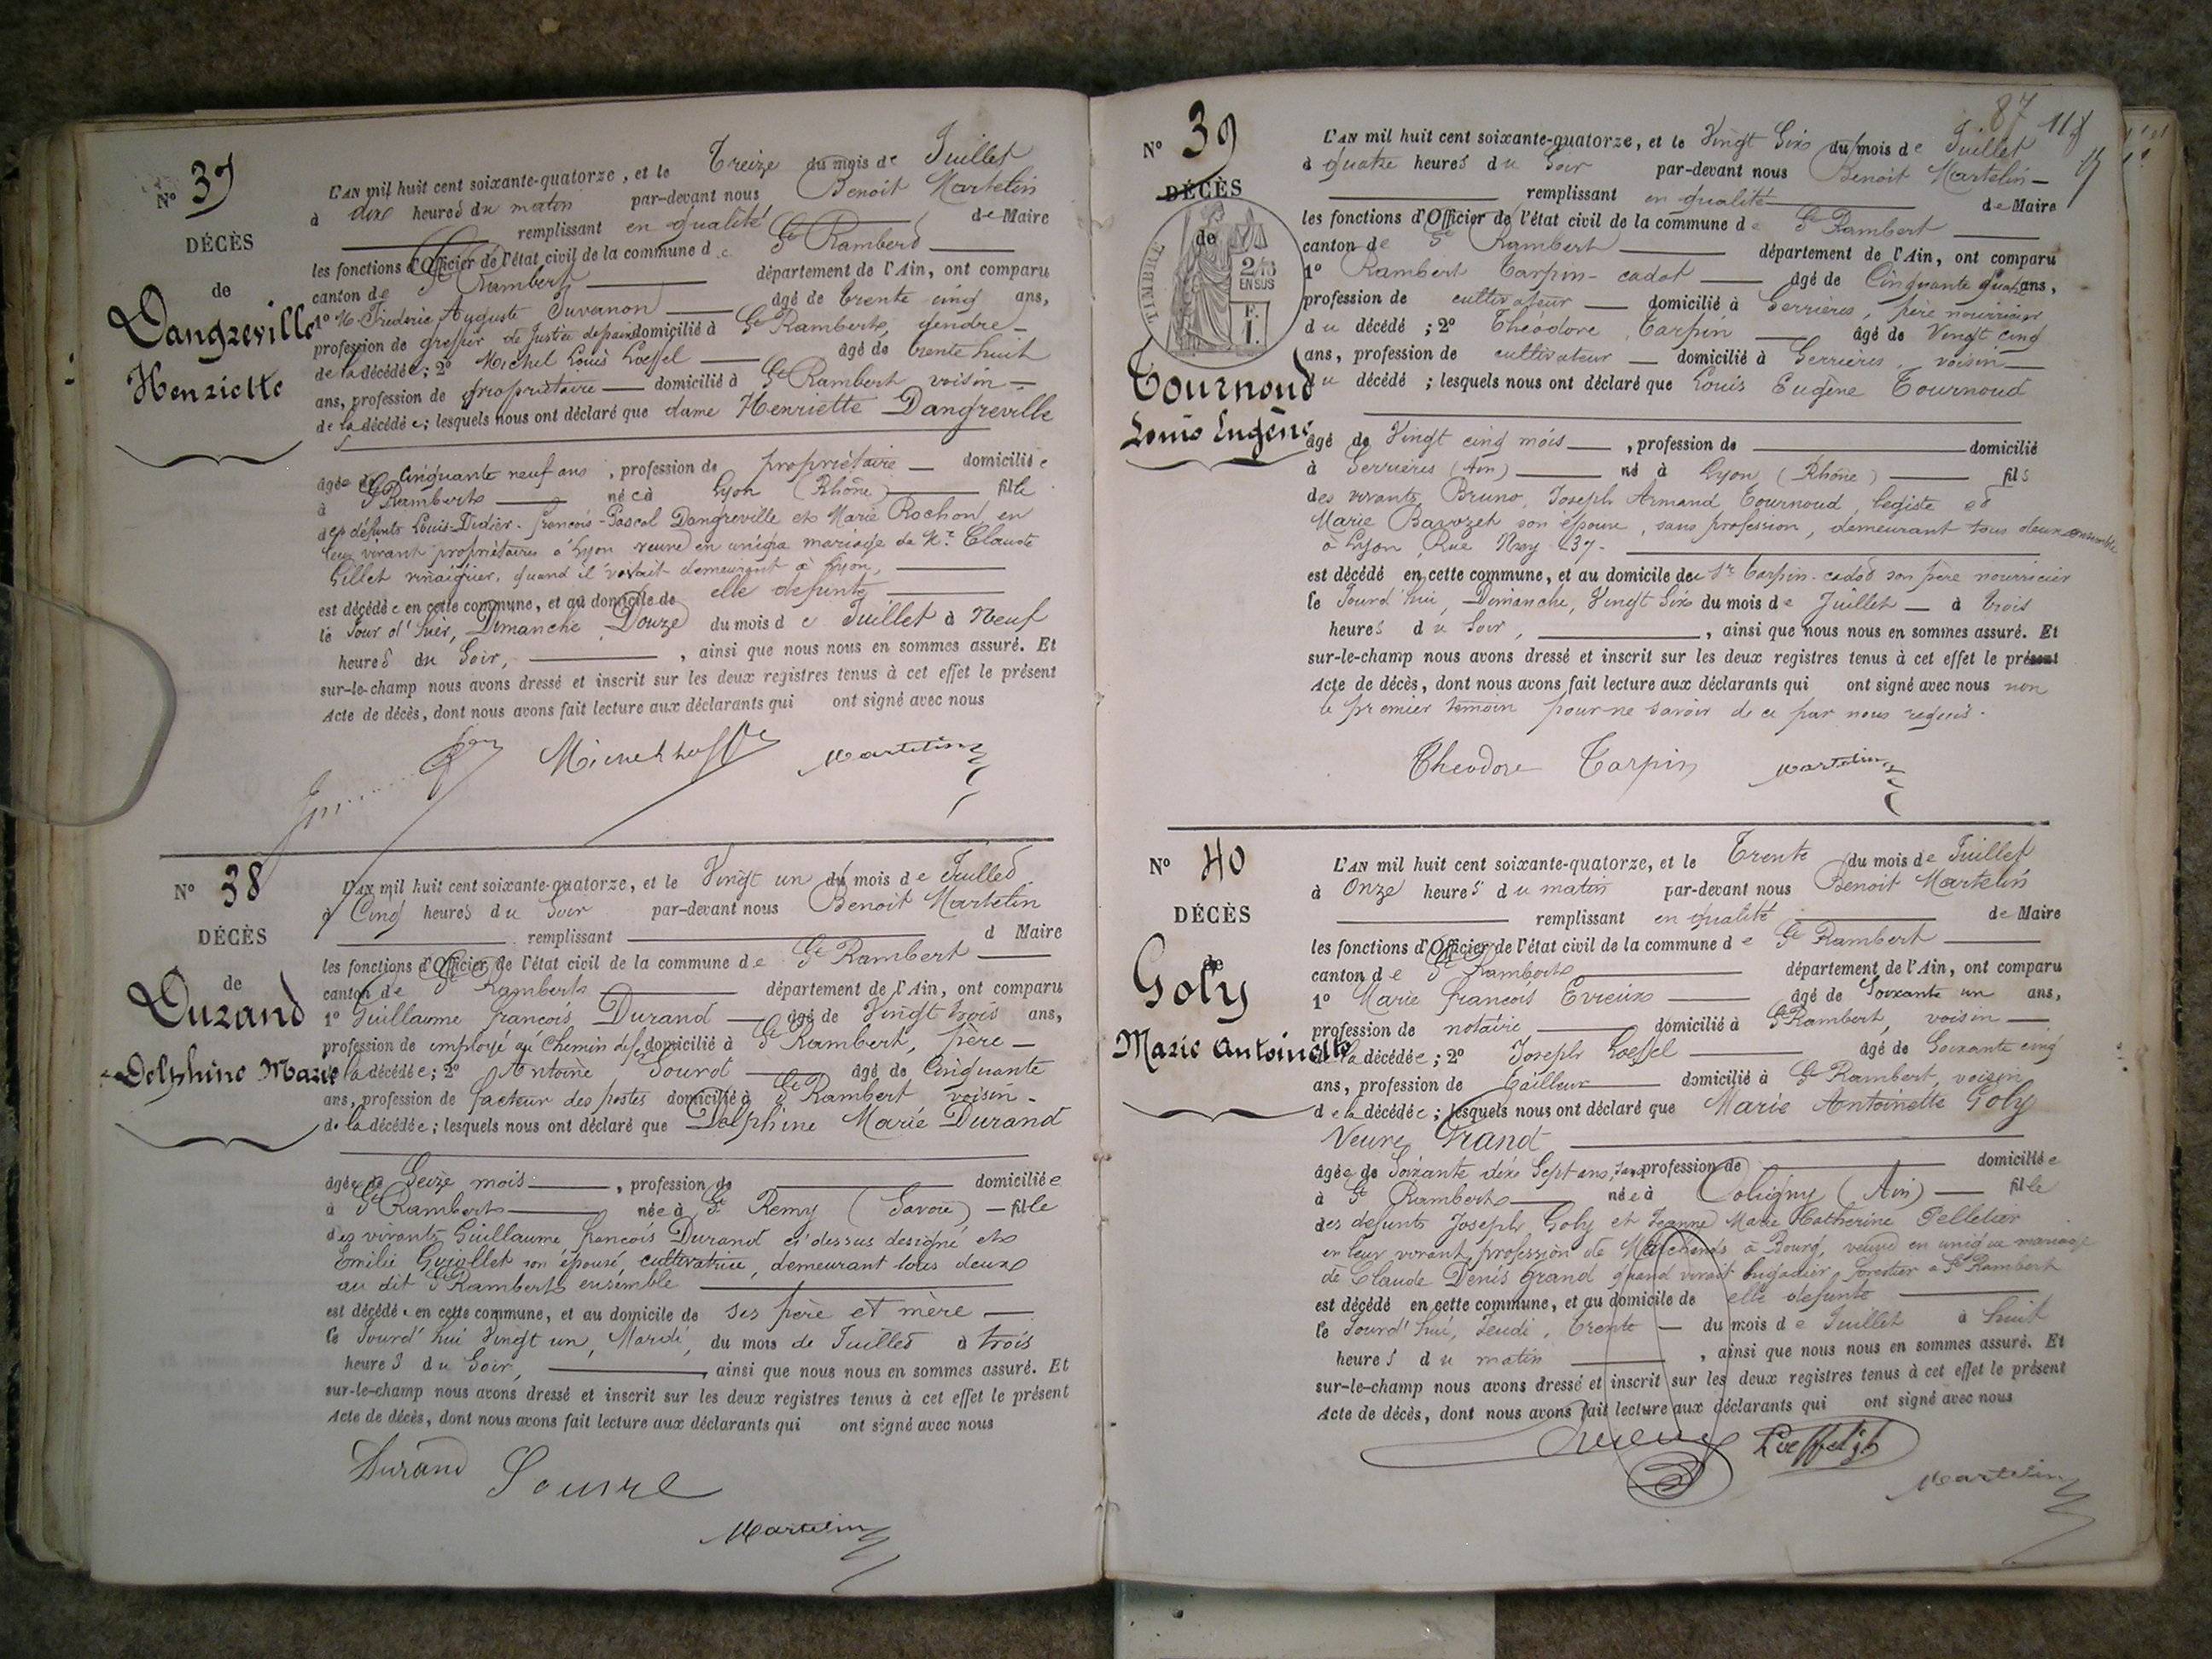 N° 37
DÉCÈS
de
Dangreville
Henriette
L'AN mil huit cent soixante-quatorze, et le Treize du mois de Juillet
à dix heures du matin par-devant nous Benoit Martelin
remplissant en qualité de Maire
les fonctions d'Officier de l'état civil de la commune de St Rambert
canton de St Rambert département de l'Ain, ont comparu
1° Mr Frederic Auguste Juvanon âgé de trente cinq ans,
profession de greffier de Justice de paix domicilié à St Rambert, gendre
de la décédée; 2° Michel Louis Loeffel âgé de trente huit
ans, profession de propriétaire domicilié à St Rambert voisin
de la décédée; lesquels nous ont déclaré que dame Henriette Dangreville
âgée de Cinquante neuf ans, profession de propriétaire domiciliée
à St Rambert née à Lyon (Rhône) fille
des défunts Louis-Didier-François-Pascal Dangreville et Marie Rochon, en
leur vivant propriétaires à Lyon veuve en unique mariage de Mr Claude
Gillet vinaigrier, quand il vivait demeurant à Lyon,
est décédée en cette commune, et au domicile de elle défunte
le Jour d'hier, Dimanche Douze du mois de Juillet à Neuf
heures du Soir, ainsi que nous nous en sommes assuré. Et
sur-le-champ nous avons dressé et inscrit sur les deux registres tenus à cet effet le présent
Acte de décès, dont nous avons fait lecture aux déclarants qui ont signé avec nous
Martelin
N° 38
DÉCÈS
de
Durand
Delphine Marie
L'AN mil huit cent soixante-quatorze, et le Vingt un du mois de Juillet
à Cinq heures du Soir par-devant nous Benoit Martelin
remplissant d Maire
les fonctions d'Officier de l'état civil de la commune de St Rambert
canton de St Rambert département de l'Ain, ont comparu
1° Guillaume François Durand âgé de Vingt trois ans,
profession de employé au Chemin de fer domicilié à St Rambert, père
de la décédée; 2° Antoine Sourd âgé de Cinquante
ans, profession de facteur des postes domicilié à St Rambert voisin
de la décédée; lesquels nous ont déclaré que Delphine Marie Durand
âgée de Seize mois, profession de domiciliée
à St Rambert née à St Remy (Savoie) fille
des vivants Guillaume François Durand ci dessus designé et
Emilie son épouse, cultivatrice, demeurant tous deux
au dit St Rambert ensemble
est décédée en cette commune, et au domicile de ses père et mère
le Jourd'hui Vingt un, Mardi, du mois de Juillet à trois
heures du Soir, ainsi que nous nous en sommes assuré. Et
sur-le-champ nous avons dressé et inscrit sur les deux registres tenus à cet effet le présent
Acte de décès, dont nous avons fait lecture aux déclarants qui ont signé avec nous
Durand
Martelin
87
N° 39
DÉCÈS
de
TIMBRE
2/10
EN SUS
F.
1.
Tournoud
Louis Eugène
L'AN mil huit cent soixante-quatorze, et le Vingt Six du mois de Juillet
à quatre heures du Soir par-devant nous Benoit Martelin
remplissant en qualité de Maire
les fonctions d'Officier de l'état civil de la commune de St Rambert
canton de St Rambert département de l'Ain, ont comparu
1° Rambert Tarpin-cadot âgé de Cinquante ans,
profession de cultivateur domicilié à Serrières, père nourricier
du décédé; 2° Théodore Tarpin âgé de Vingt cinq
ans, profession de cultivateur domicilié à Serrières, voisin
du décédé; lesquels nous ont déclaré que Louis Eugène Tournoud
âgé de Vingt cinq mois, profession de domicilié
à Serrières (Ain) né à Lyon (Rhône) fils
des vivants Bruno, Joseph Armand Tournoud, legiste et
Marie son épouse, sans profession, demeurant tous deux ensemble
à Lyon, Rue Ney 37.
est décédé en cette commune, et au domicile du Sr Tarpin-cadot son père nourricier
le Jourd'hui, Dimanche, Vingt Six du mois de Juillet à trois
heures du Soir, ainsi que nous nous en sommes assuré. Et
sur-le-champ nous avons dressé et inscrit sur les deux registres tenus à cet effet le présent
Acte de décès, dont nous avons fait lecture aux déclarants qui ont signé avec nous non
le premier témoin pour ne savoir de ce par nous requis.
Theodore Tarpin Martelin
N° 40
DÉCÈS
de
Goly
Marie Antoinette
L'AN mil huit cent soixante-quatorze, et le Trente du mois de Juillet
à Onze heures du matin par-devant nous Benoit Martelin
remplissant en qualité de Maire
les fonctions d'Officier de l'état civil de la commune de St Rambert
canton de St Rambert département de l'Ain, ont comparu
1° Marie François Evrieux âgé de Soixante un ans,
profession de notaire domicilié à St Rambert, voisin
de la décédée; 2° Joseph Loeffel âgé de Soixante cinq
ans, profession de Tailleur domicilié à St Rambert, voisin
de la décédée; lesquels nous ont déclaré que Marie Antoinette Goly
Veuve Grand
âgée de Soixante dix Sept ans, sans profession de domiciliée
à St Rambert née à Coligny (Ain) fille
des défunts Joseph Goly et Jeanne Marie Catherine Pelletier
en leur vivant profession de Marchands à Bourg, veuve en unique mariage
de Claude Denis Grand quand vivait brigadier forestier à St Rambert
est décédé en cette commune, et au domicile de elle défunte
le Jourd'hui, Jeudi, Trente du mois de Juillet à huit
heures du matin, ainsi que nous nous en sommes assuré. Et
sur-le-champ nous avons dressé et inscrit sur les deux registres tenus à cet effet le présent
Acte de décès, dont nous avons fait lecture aux déclarants qui ont signé avec nous
Martelin